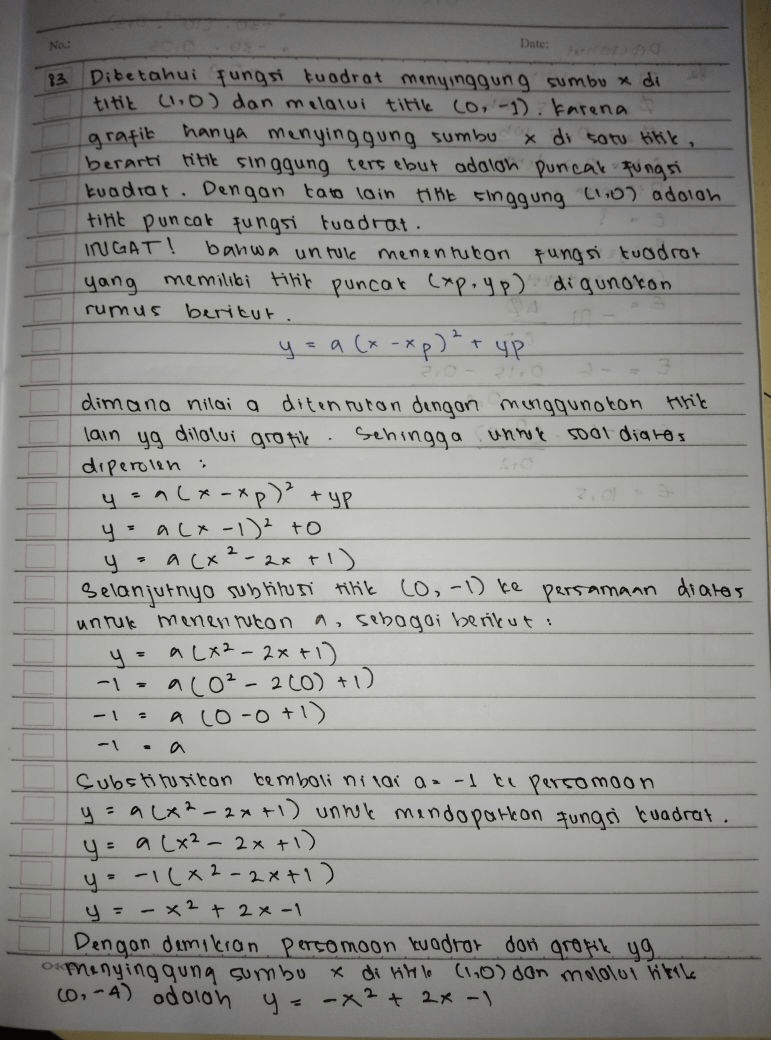 No.:
Date:
83 Diketahui fungsi kuadrat menyinggung sumbu x di
titik (1,0) dan melalui titik (0, -1). Karena
grafik hanya menyinggung sumbu x di satu titik,
berarti titik singgung tersebut adalah puncak fungsi
kuadrat. Dengan kata lain titik singgung (1,0) adalah
titik puncak fungsi kuadrat.
INGAT! bahwa untuk menentukan fungsi kuadrat
yang memiliki titik puncak (xp, yp) digunakan
rumus berikut.
y = a (x - xp)² + yp
dimana nilai a ditentukan dengan menggunakan titik
lain yg dilalui grafik. Sehingga untuk soal diatas
diperoleh :
y = a (x - xp)² + yp
y = a (x - 1)² + 0
y = a (x² - 2x + 1)
Selanjutnya subtitusi titik (0, -1) ke persamaan diatas
untuk menentukan a, sebagai berikut :
y = a (x² - 2x + 1)
-1 = a (0² - 2(0) + 1)
-1 = a (0 - 0 + 1)
-1 = a
Substitusikan kembali nilai a = -1 ke persamaan
y = a (x² - 2x + 1) untuk mendapatkan fungsi kuadrat.
y = a (x² - 2x + 1)
y = -1 (x² - 2x + 1)
y = - x² + 2x - 1
Dengan demikian persamaan kuadrat dari grafik yg
menyinggung sumbu x di titik (1,0) dan melalui titik
(0, -4) adalah y = -x² + 2x - 1